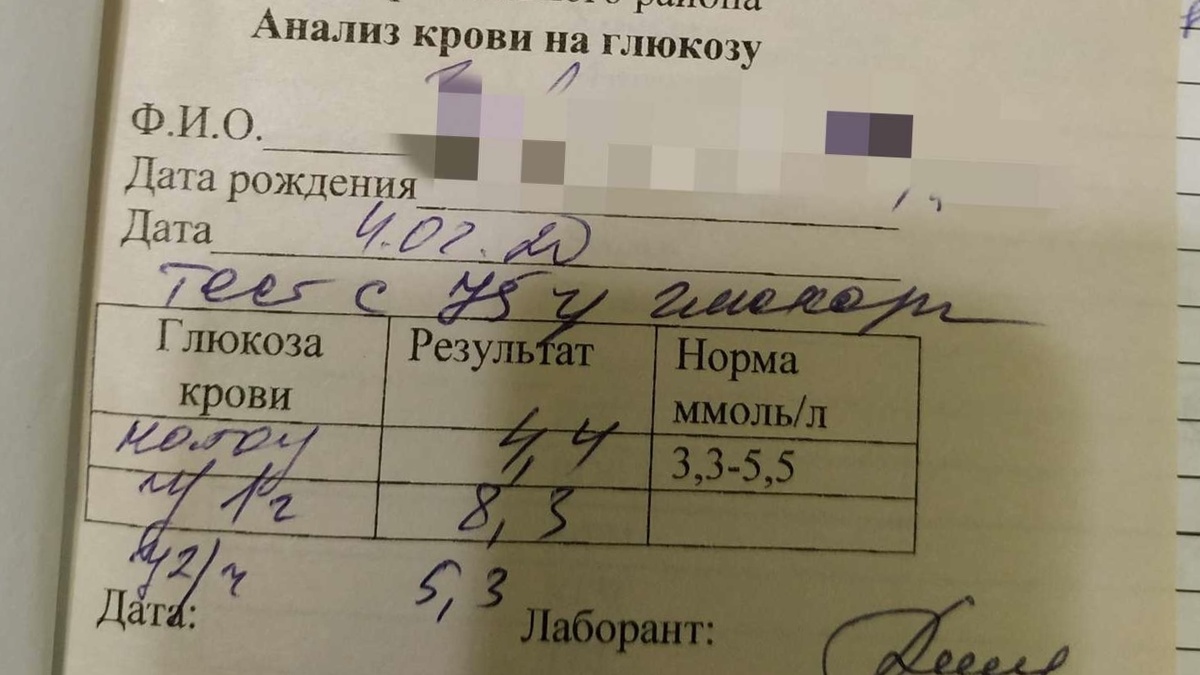 района
Анализ крови на глюкозу
Ф.И.О.
Дата рождения
Дата 4.02.20
Тест с 75 г глюкозы
Глюкоза крови Результат Норма ммоль/л
натощ 4,4 3,3-5,5
ч/ 1ч 8,3
ч/ 2ч 5,3
Дата: Лаборант: